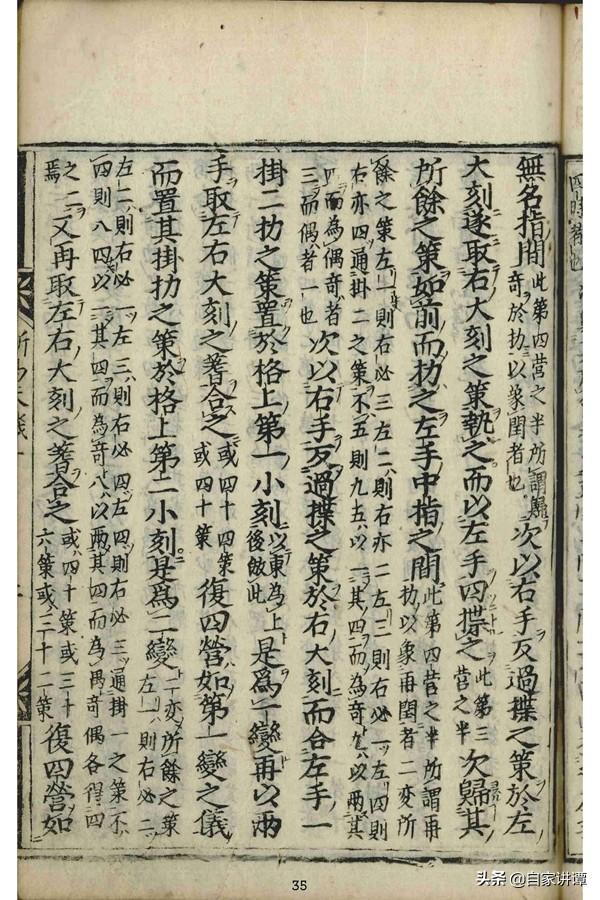 無名指間此第四營之半所謂歸奇於扐以象閏者也次以右手反過揲之策於左
大刻遂取右大刻之策執之而以左手四揲之此第三營之半次歸其
所餘之策如前而扐之左手中指之間此第四営之半所謂再扐以象再閏者二変所
餘之策左一則右必三左二則右亦二左三則右必一左四則
右亦四通掛二之策不五則九五以一其四而為奇九以兩其
四而為偶奇者三而偶者一也次以右手反過揲之策於右大刻而合左手一
掛二扐之策置於格上第一小刻以東為上後倣此是爲一變再以兩
手取左右大刻之蓍合之或四十四策或四十策復四營如第一變之儀
而置其掛扐之策於格上第二小刻是爲二變二変所餘之策左一則右必二
左二則右必一左三則右必四左四則右必三通掛一之策不
四則八四以一其四而為奇八以兩其四而為偶奇偶各得四
之二焉又再取左右大刻之蓍合之或四十策或三十六策或三十二策復四營如
35
头条 @自家讲谭